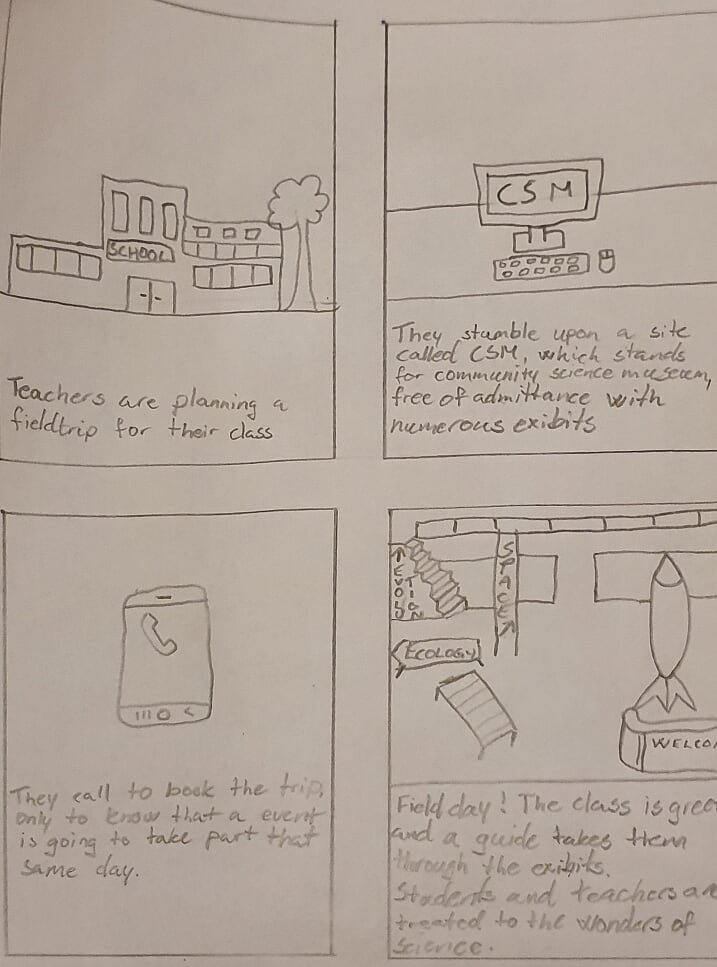 SCHOOL
Teachers are planning a
fieldtrip for their class
CSM
They stumble upon a site
called CSM, which stands
for community science museum,
free of admittance with
numerous exibits
They call to book the trip,
only to know that a event
is going to take part that
same day.
EVOLUTION
SPACE
ECOLOGY
WELCO
Field day! The class is gree
and a guide takes them
through the exibits.
Students and teachers are
treated to the wonders of
science.